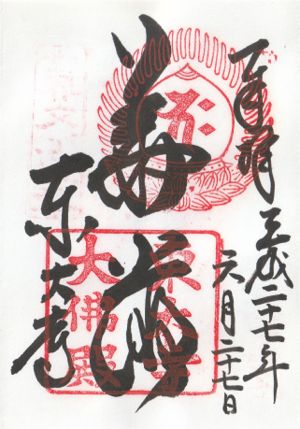 奉拝
平成二十七年
六月二十七日
華厳
東大寺
東大寺
大佛殿